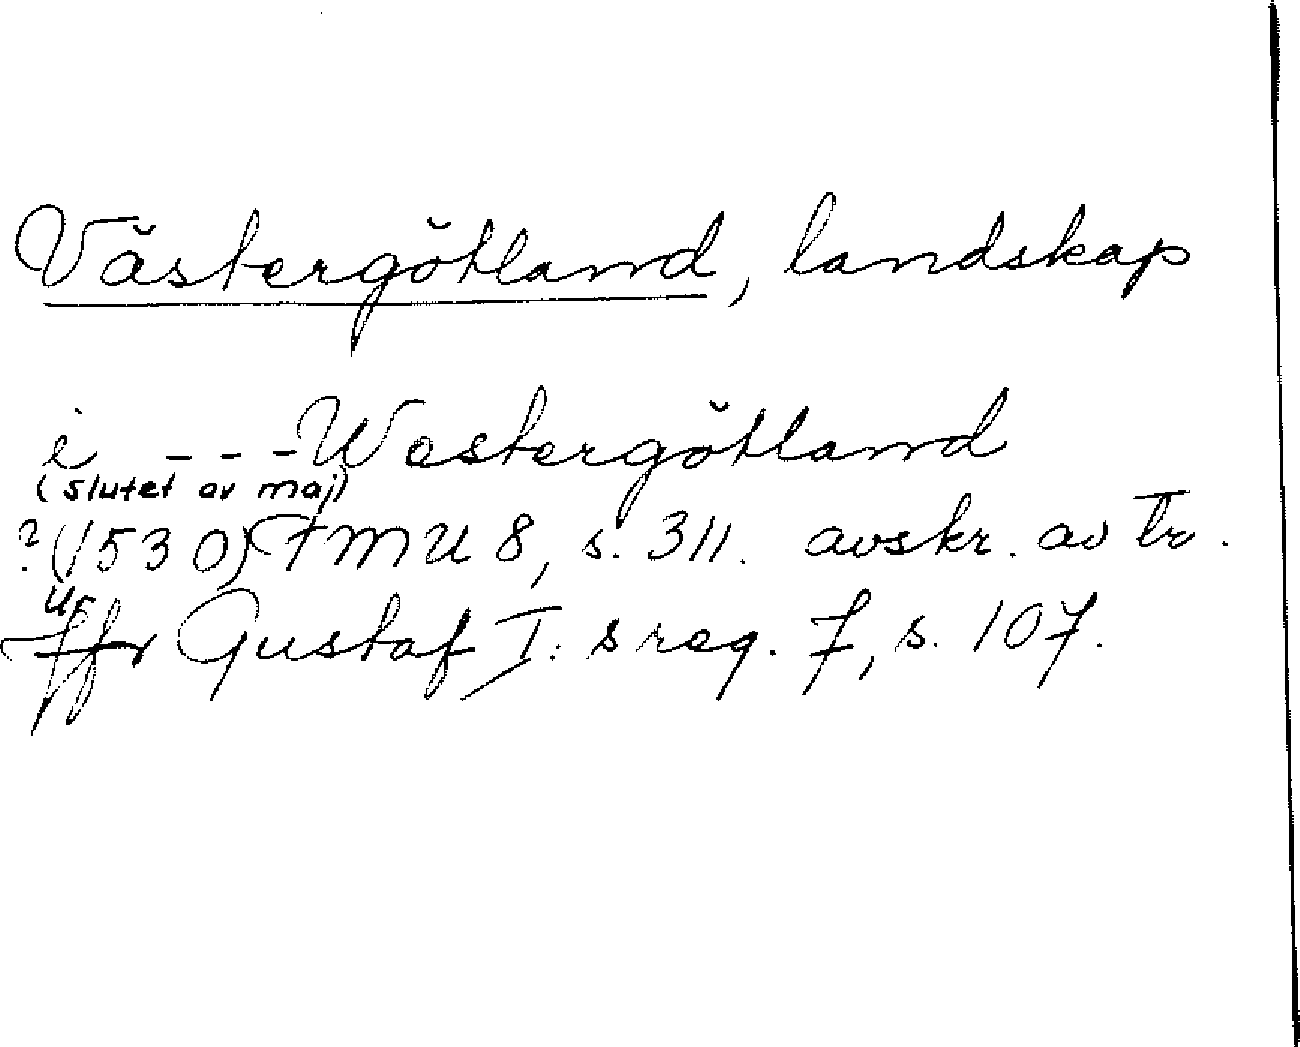 Västergötland, landskap
i --- Westergötland
(slutet av maj)
?(1530) FMU 8, s. 311. avskr. av Tr.
Ur
Jfr Gustaf I:s reg. 7, s. 107.